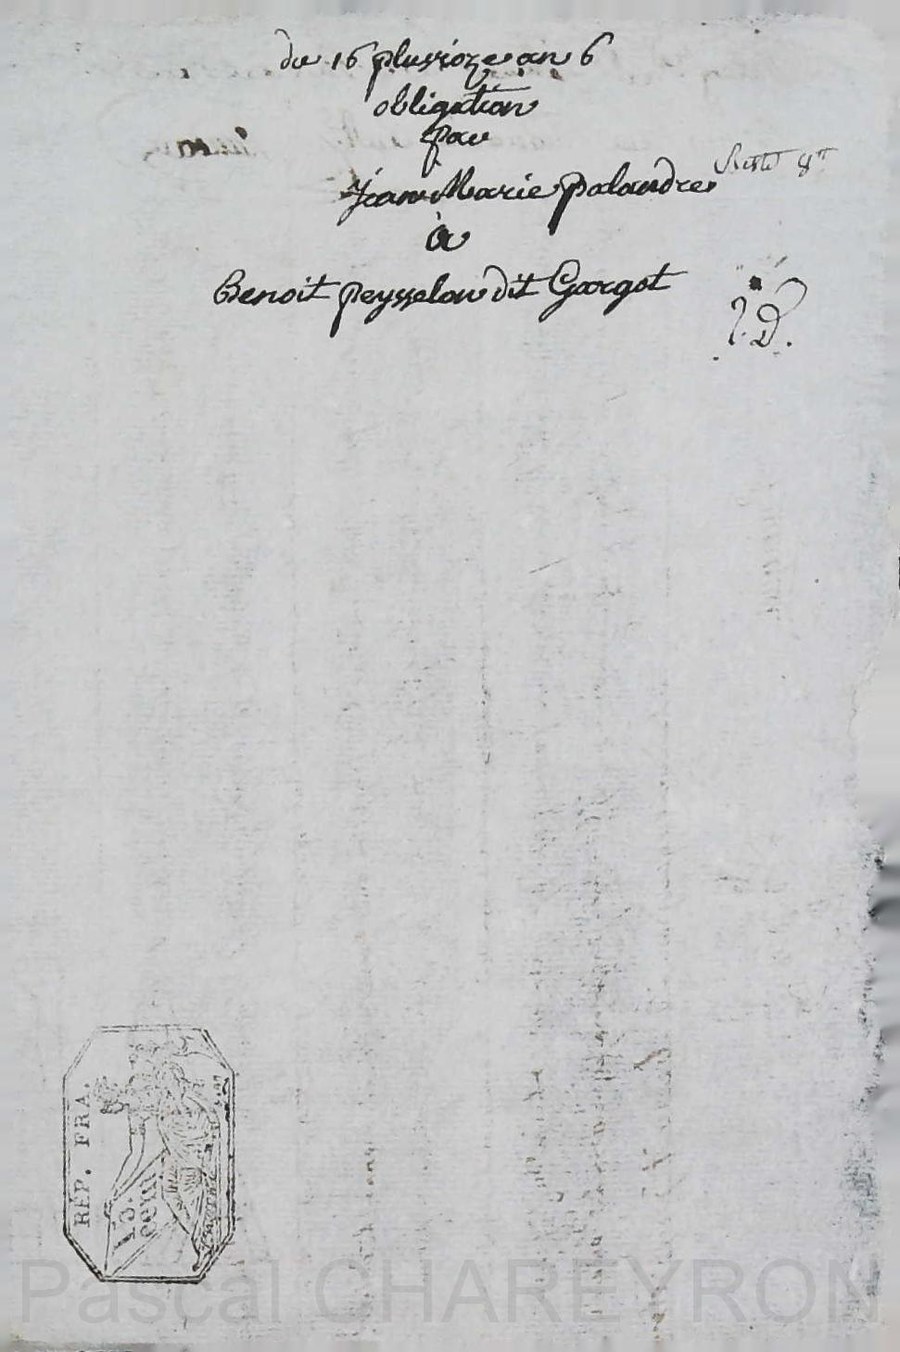 du 16 pluvioze an 6
obligation
par
Jean Marie palandre
Reste 8
à
Benoit peysselon dit Gorgot
2. D.
RÉP. FRA.
cent
Pascal CHAREYRON